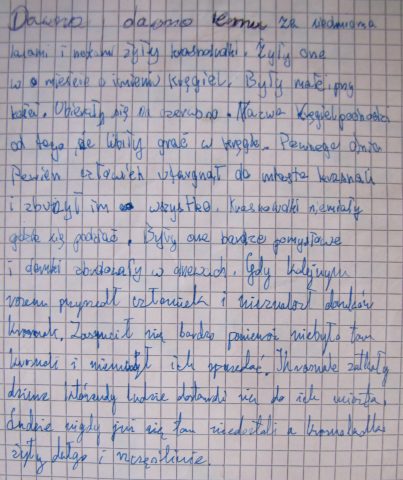 Dawno dawno temu za siedmioma
lasami i rzekami żyły krasnoludki. Żyły one
w mieście o imieniu Kręgiel. Były małe, przy
kości. Ubierały się na czerwono. Nazwa Kręgiel pochodzi
od tego, że lubiły grać w kręgle. Pewnego dnia
Pewien człowiek wtargnął do miasta krasnali
i zburzył im wszystko. Krasnoludki niemiały
gdzie się podziać. Były one bardzo pomysłowe
i domki zbudowały w drzewach. Gdy kolejnym
razem przyszedł człowiek i nieznalazł domków
krasnali. Zasmucił się bardzo ponieważ niebyło tam
krasnali i niemógł ich sprzedać. Krasnale zatkały
dziurę którędy ludzie dostawali się do ich miasta.
Ludzie nigdy już się tam niedostali a krasnoludki
żyły długo i szczęśliwie.